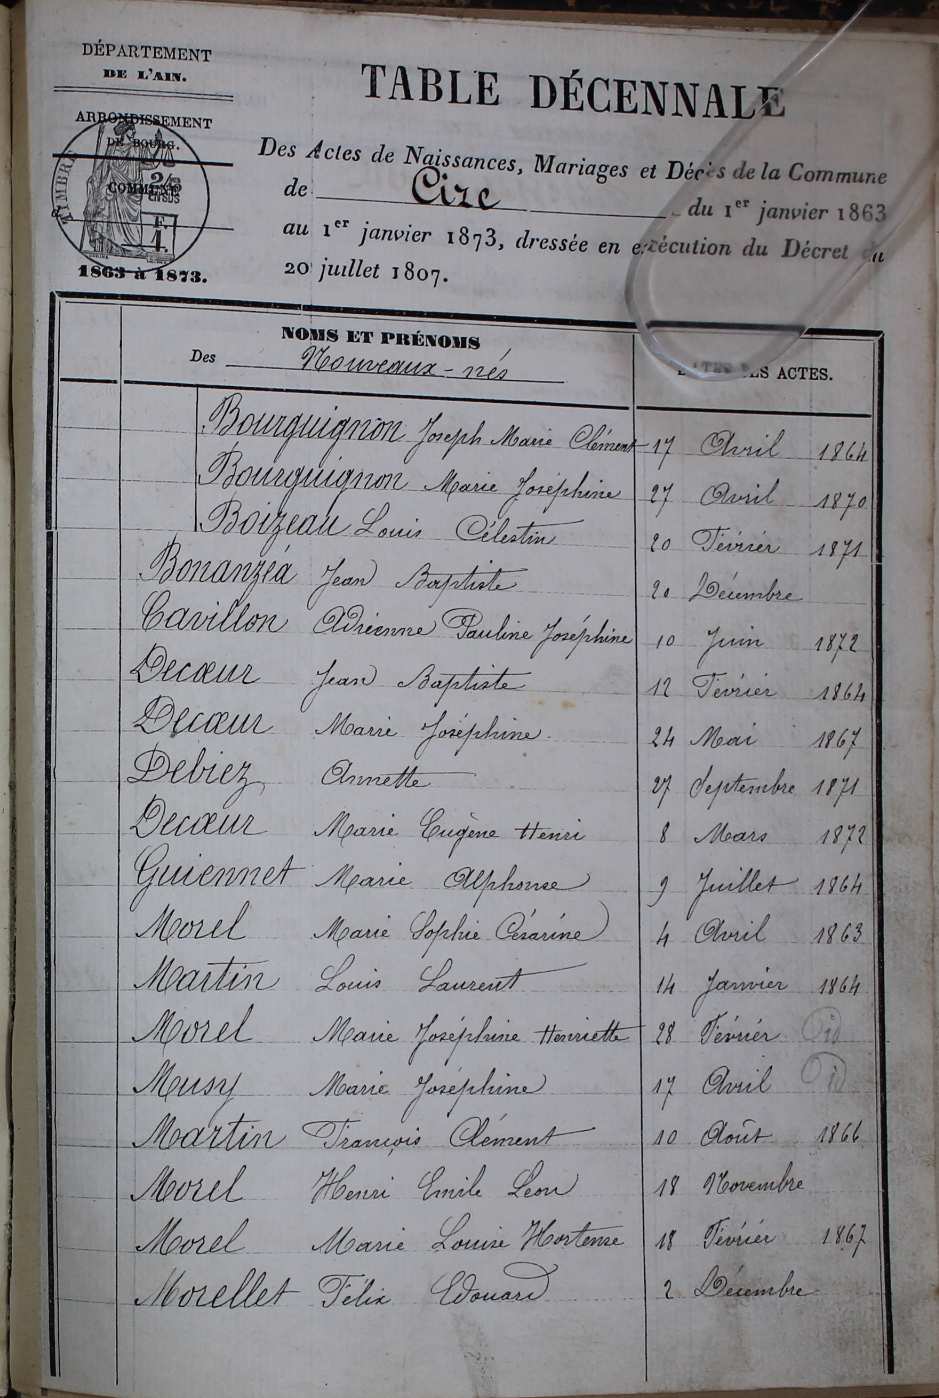 DÉPARTEMENT
DE L'AIN.
ARRONDISSEMENT
DE BOURG.
COMMUNE
TIMBRE
1863 à 1873.
TABLE DÉCENNALE
Des Actes de Naissances, Mariages et Décès de la Commune
de Cize du 1er janvier 1863
au 1er janvier 1873, dressée en exécution du Décret du
20 juillet 1807.
NOMS ET PRÉNOMS
Des Nouveaux-nés
DATES DES ACTES.
Bourguignon Joseph Marie Clément 17 Avril 1864
Bourguignon Marie Joséphine 27 Avril 1870
Boizeau Louis Célestin 20 Février 1871
Bonanzéa Jean Baptiste 20 Décembre
Cavillon Adrienne Pauline Joséphine 10 Juin 1872
Decœur Jean Baptiste 12 Février 1864
Decœur Marie Joséphine 24 Mai 1867
Debiez Annette 27 Septembre 1871
Decœur Marie Eugène Henri 8 Mars 1872
Guiennet Marie Alphonse 9 Juillet 1864
Morel Marie Sophie Césarine 4 Avril 1863
Martin Louis Laurent 14 Janvier 1864
Morel Marie Joséphine Henriette 28 Février id
Musy Marie Joséphine 17 Avril id
Martin François Clément 10 Août 1866
Morel Henri Emile Léon 18 Novembre
Morel Marie Louise Hortense 18 Février 1867
Morellet Félix Edouard 2 Décembre